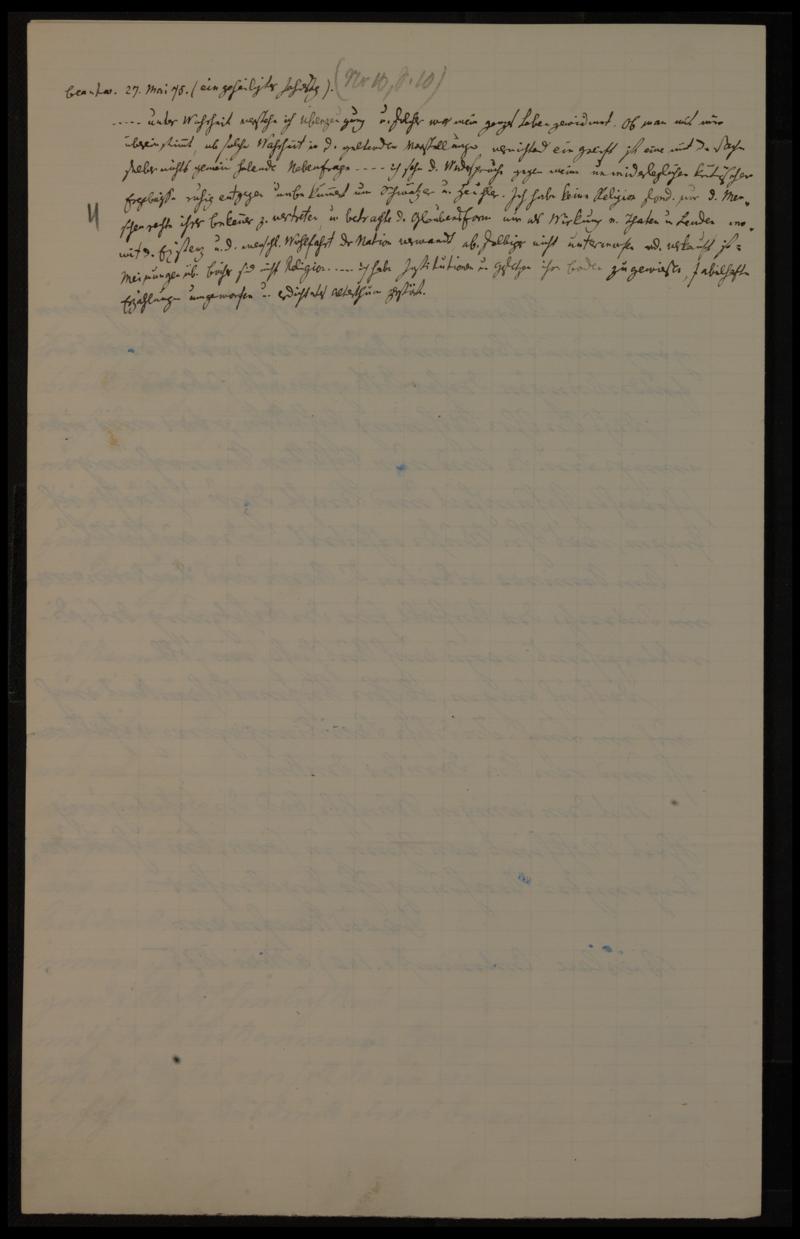 beantw. 27. Mai 75. (ein geheiligter ). (Nr 10, S. 10)
---- unter Wahrheit verstehe ich Überzeugung u. dieser war mein ganzes Leben gewidmet. Ob man mit mir
übereinstimmt, ob solche Wahrheit in d. geltenden Vorstellungen vernichtend eingreift ist eine mit der Sache
selber nichts gemein habende Nebenfrage ---- ich sehe d. Widersprüche gegen meine unwiderleglichen kritischen
Ergebnisse ruhig entgegen unbekümmert um Schmutzer u. Heuchler. Ich habe keine Religion sond. nur d. Men-
4
schenrechte ihrer Bekenner zu vertreten, u betrachte d. Glaubensform nur als Wirkung v. Thaten u Leiden
mit d. Existenz u. d. menschl. Wohlfahrt der Nation verwandt ab. selbiger nicht unterworfen od. verkauft
Meinungen üb. Bücher sind nicht Religion. ---- ich habe Institutionen u. Gesetzen ihren Boden zugewiesen, fabelhafte
Erzählungen umgeworfen u. erdichtetes Alterthum gestürzt.